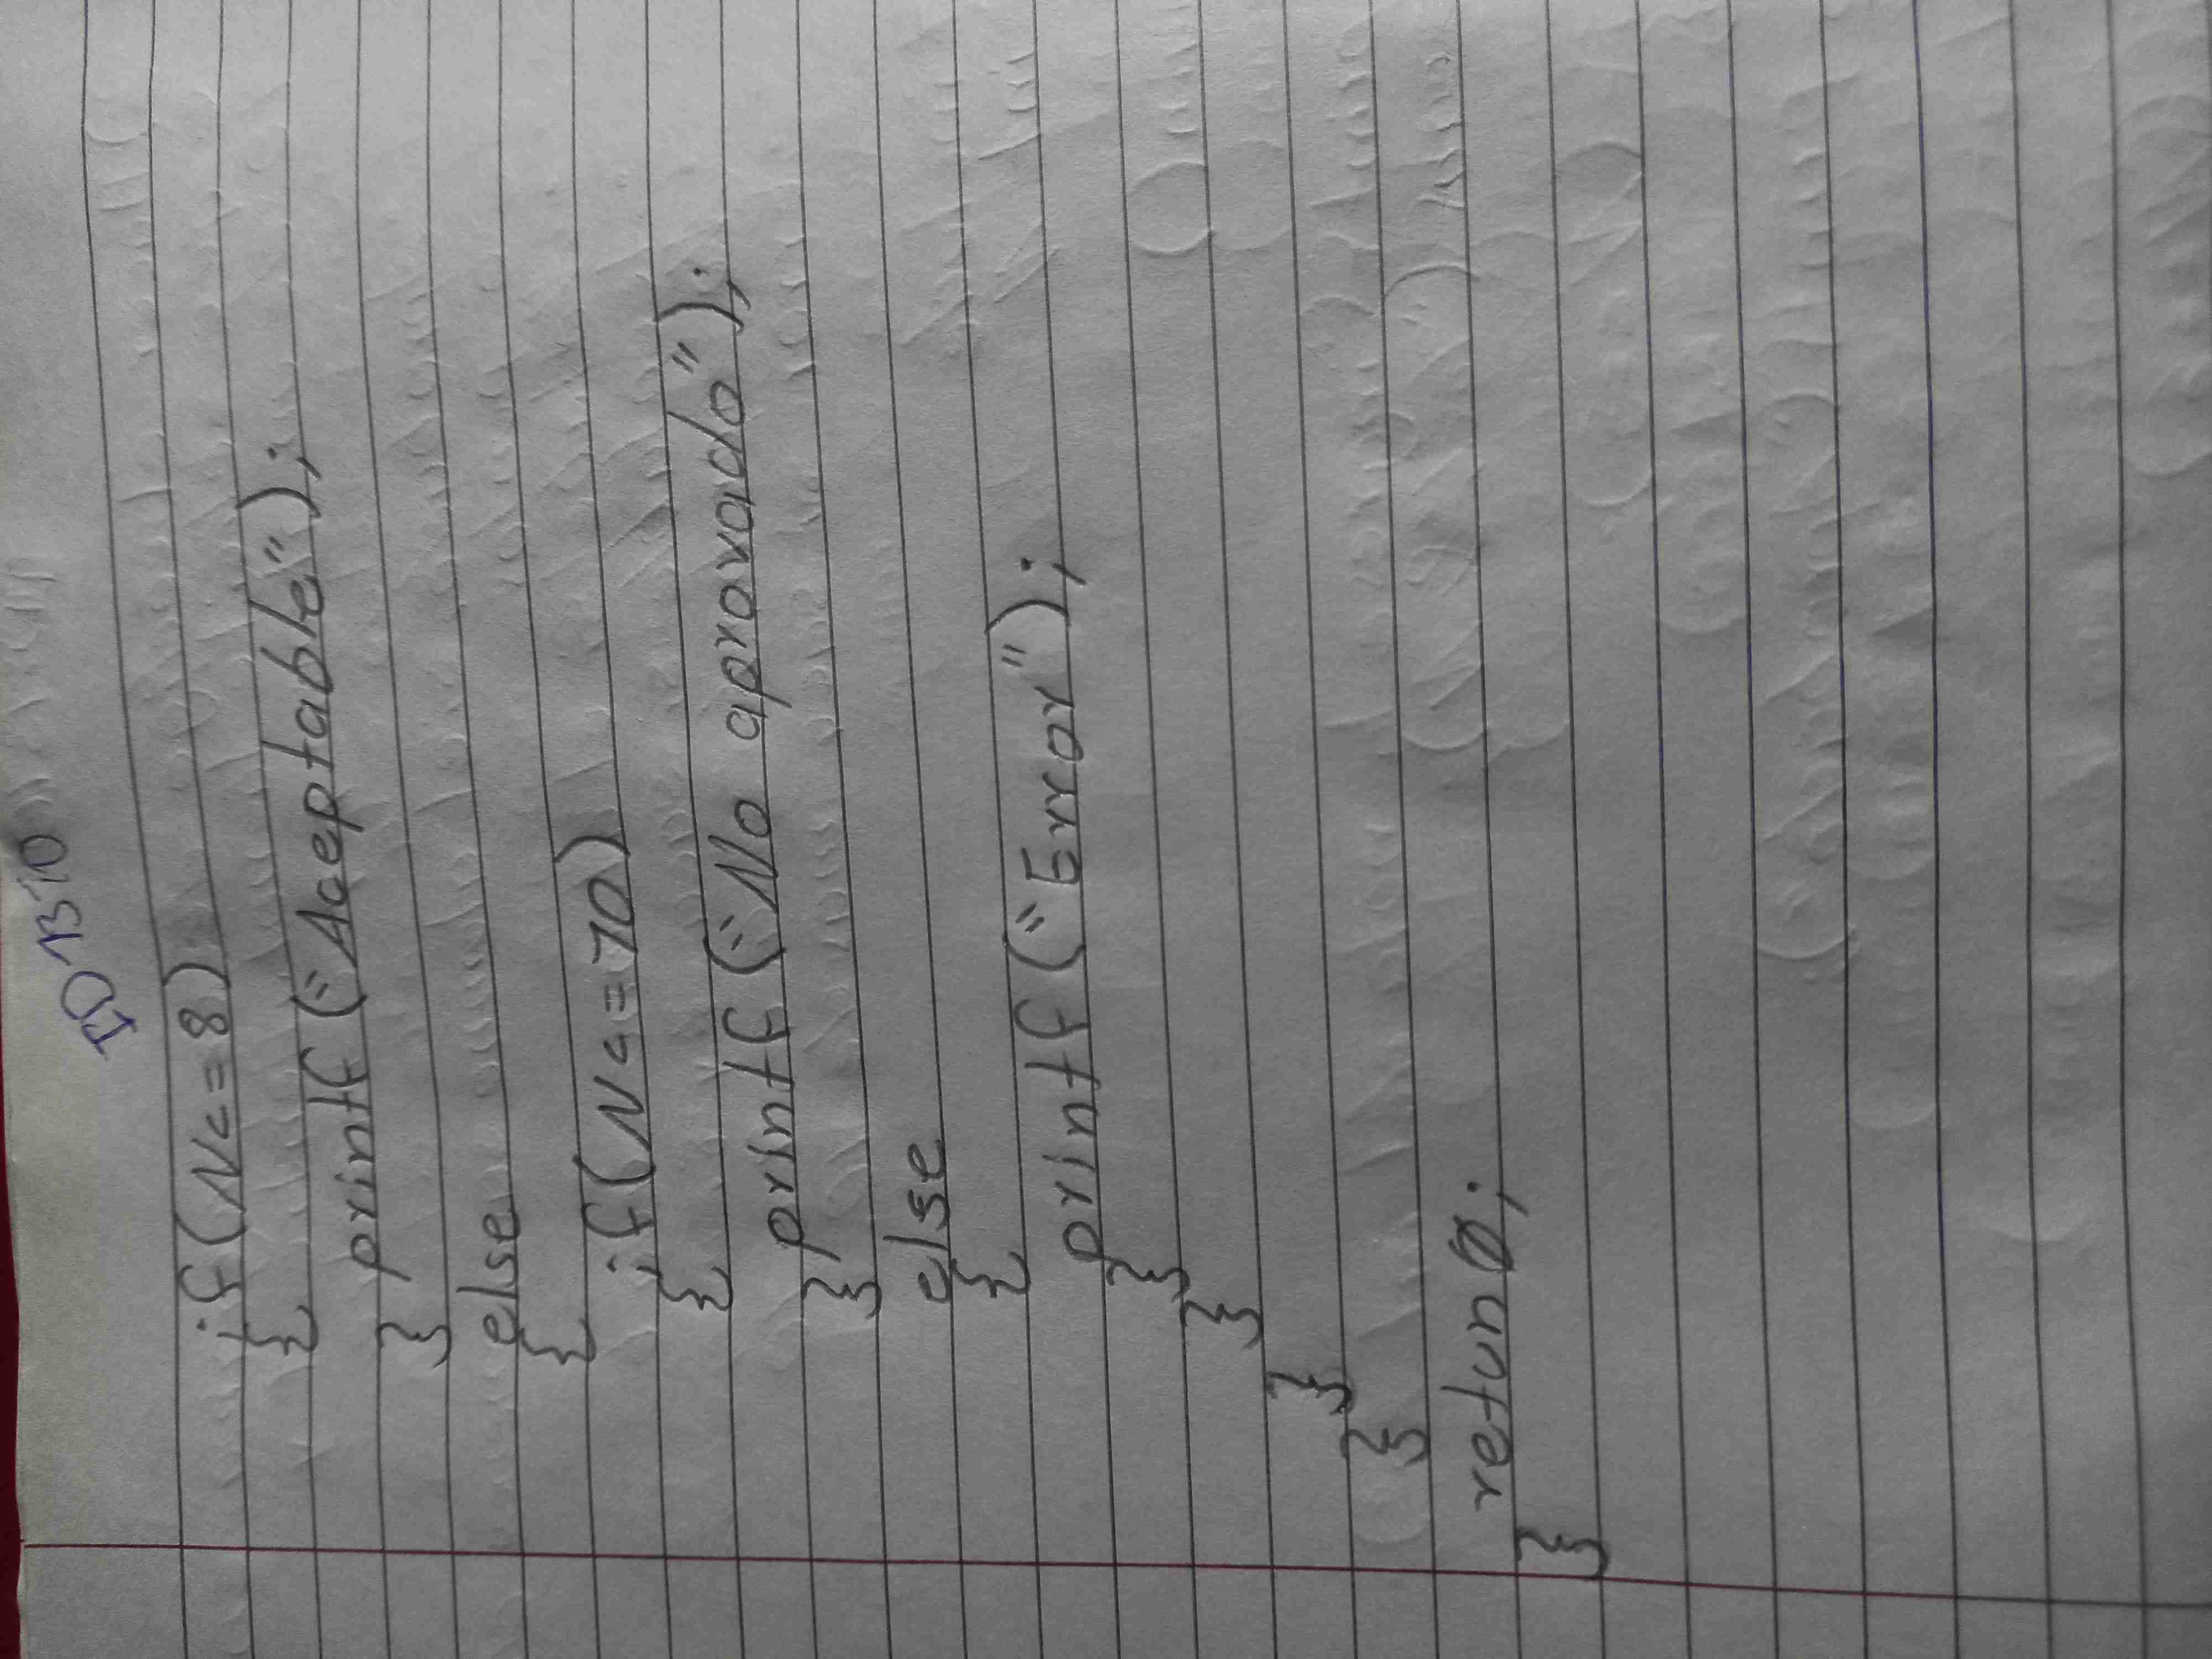 if(N<=8)
{
printf("Aceptable");
}
else
{
if(N<=10)
{
printf("No aprovado");
}
else
{
printf("Error");
}
}
}
}
retun 0;
}